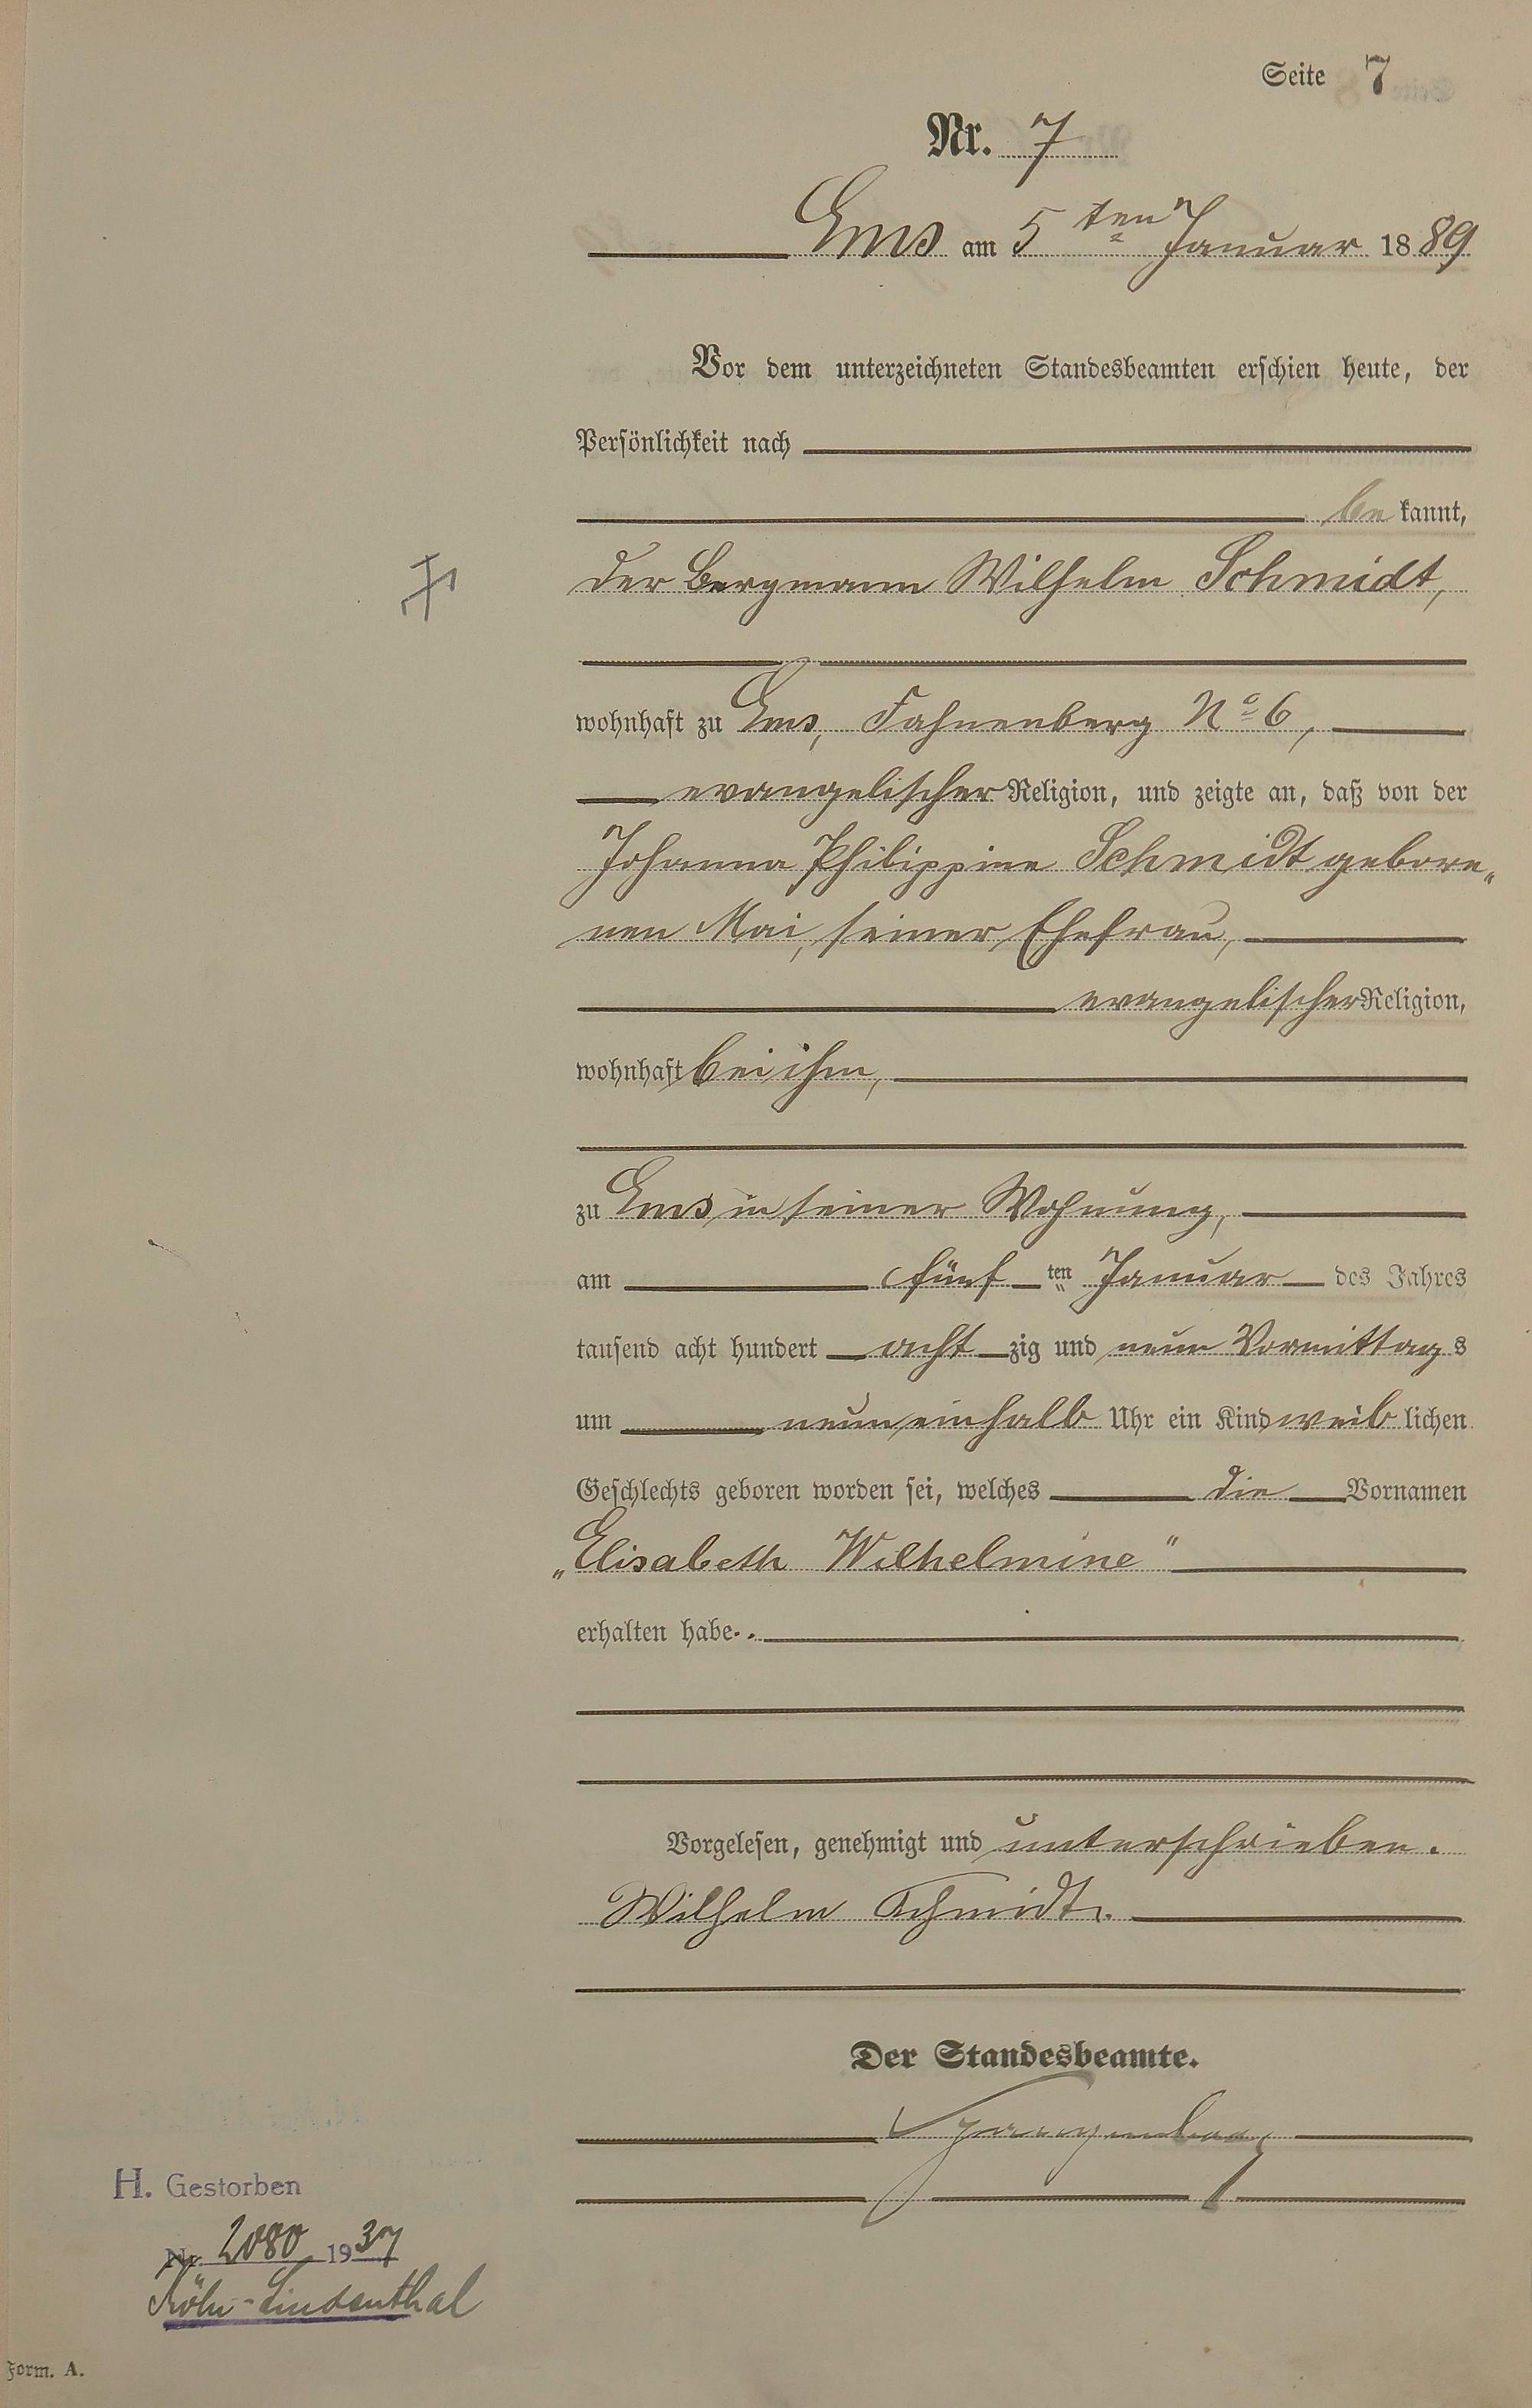 Seite 7
Nr. 7
Ems am 5ten Januar 1889
Vor dem unterzeichneten Standesbeamten erschien heute, der
Persönlichkeit nach
be kannt,
der Bergmann Wilhelm Schmidt,
wohnhaft zu Ems, Fahnenberg No 6,
evangelischer Religion, und zeigte an, daß von der
Johanna Philippine Schmidt gebore„
nen Mai, seiner Ehefrau,
evangelischer Religion,
wohnhaft bei ihm,
zu Ems in seiner Wohnung,
am fünf ten Januar des Jahres
tausend acht hundert acht zig und neun Vormittag s
um neun einhalb Uhr ein Kind weib lichen
Geschlechts geboren worden sei, welches die Vornamen
„Elisabeth Wilhelmine"
erhalten habe.
Vorgelesen, genehmigt und unterschrieben.
Wilhelm Schmidt.
Der Standesbeamte.
H. Gestorben
Nr. 2080 1937
Köln-Lindenthal
Form. A.